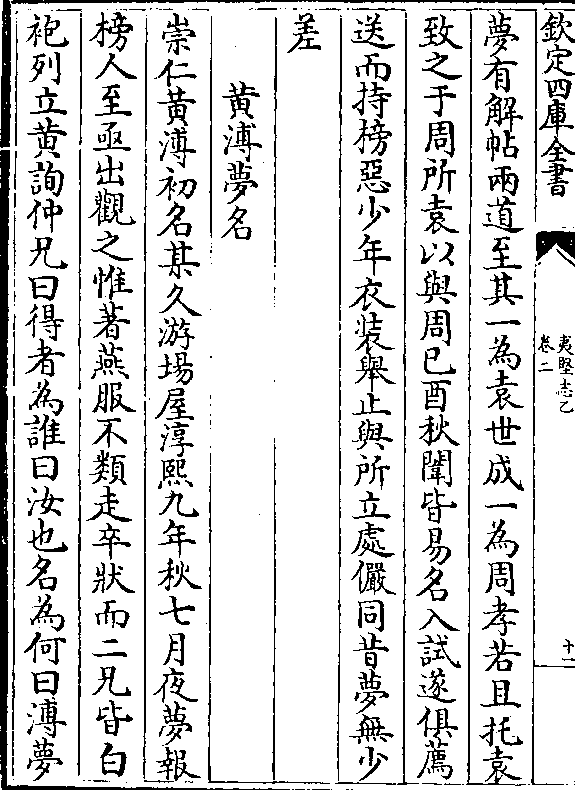 欽定四庫全書
夷堅志乙
卷二
十一
夢有解帖兩道至其一為袁世成一為周孝若且托袁
致之于周所袁以與周已酉秋闈皆易名入試遂俱薦
送而持榜惡少年衣裝舉止與所立處儼同昔夢無少
差
黃溥夢名
崇仁黃溥初名某久游場屋淳熙九年秋七月夜夢報
榜人至亟出觀之惟著燕服不類走卒狀而二兄皆白
袍列立黃詢仲兄曰得者為誰曰汝也名為何曰溥夢